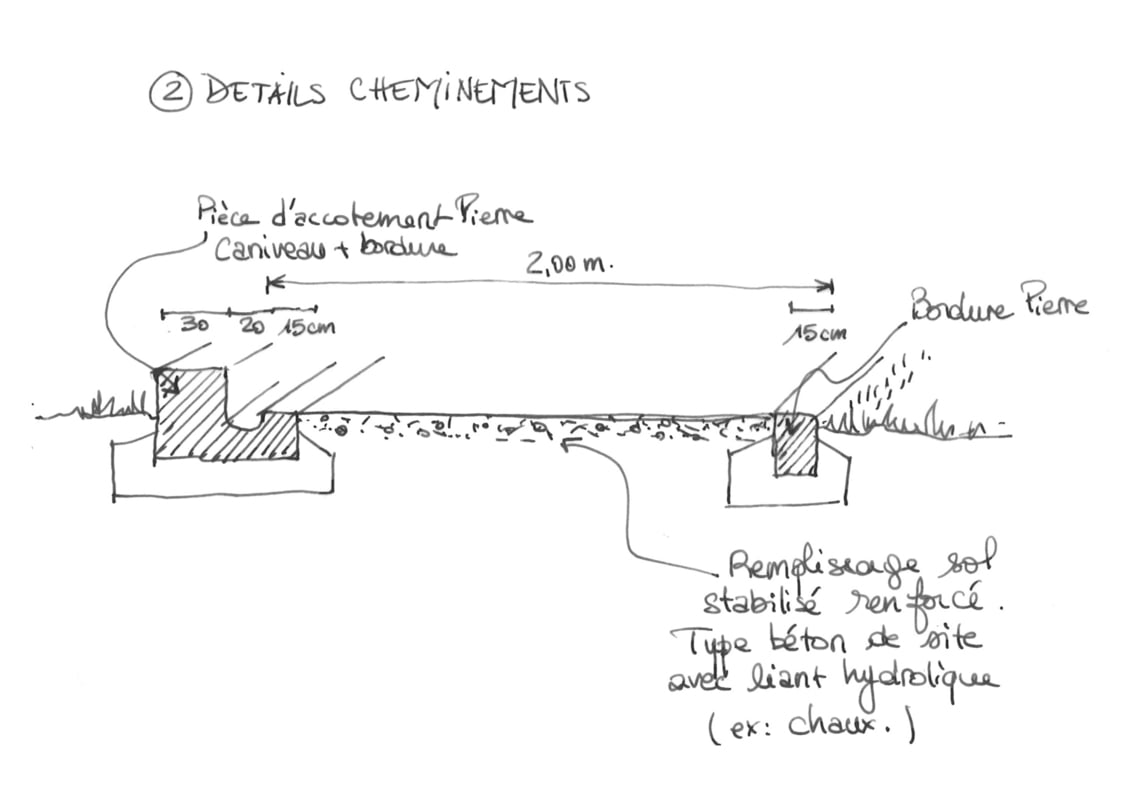 ② DETAILS CHEMINEMENTS
Pièce d'accotement Pierre
Caniveau + bordure
2,00 m.
30 20 15cm
15cm
Bordure Pierre
Remplissage sol
stabilisé renforcé.
Type béton de site
avec liant hydrolique
(ex: chaux.)